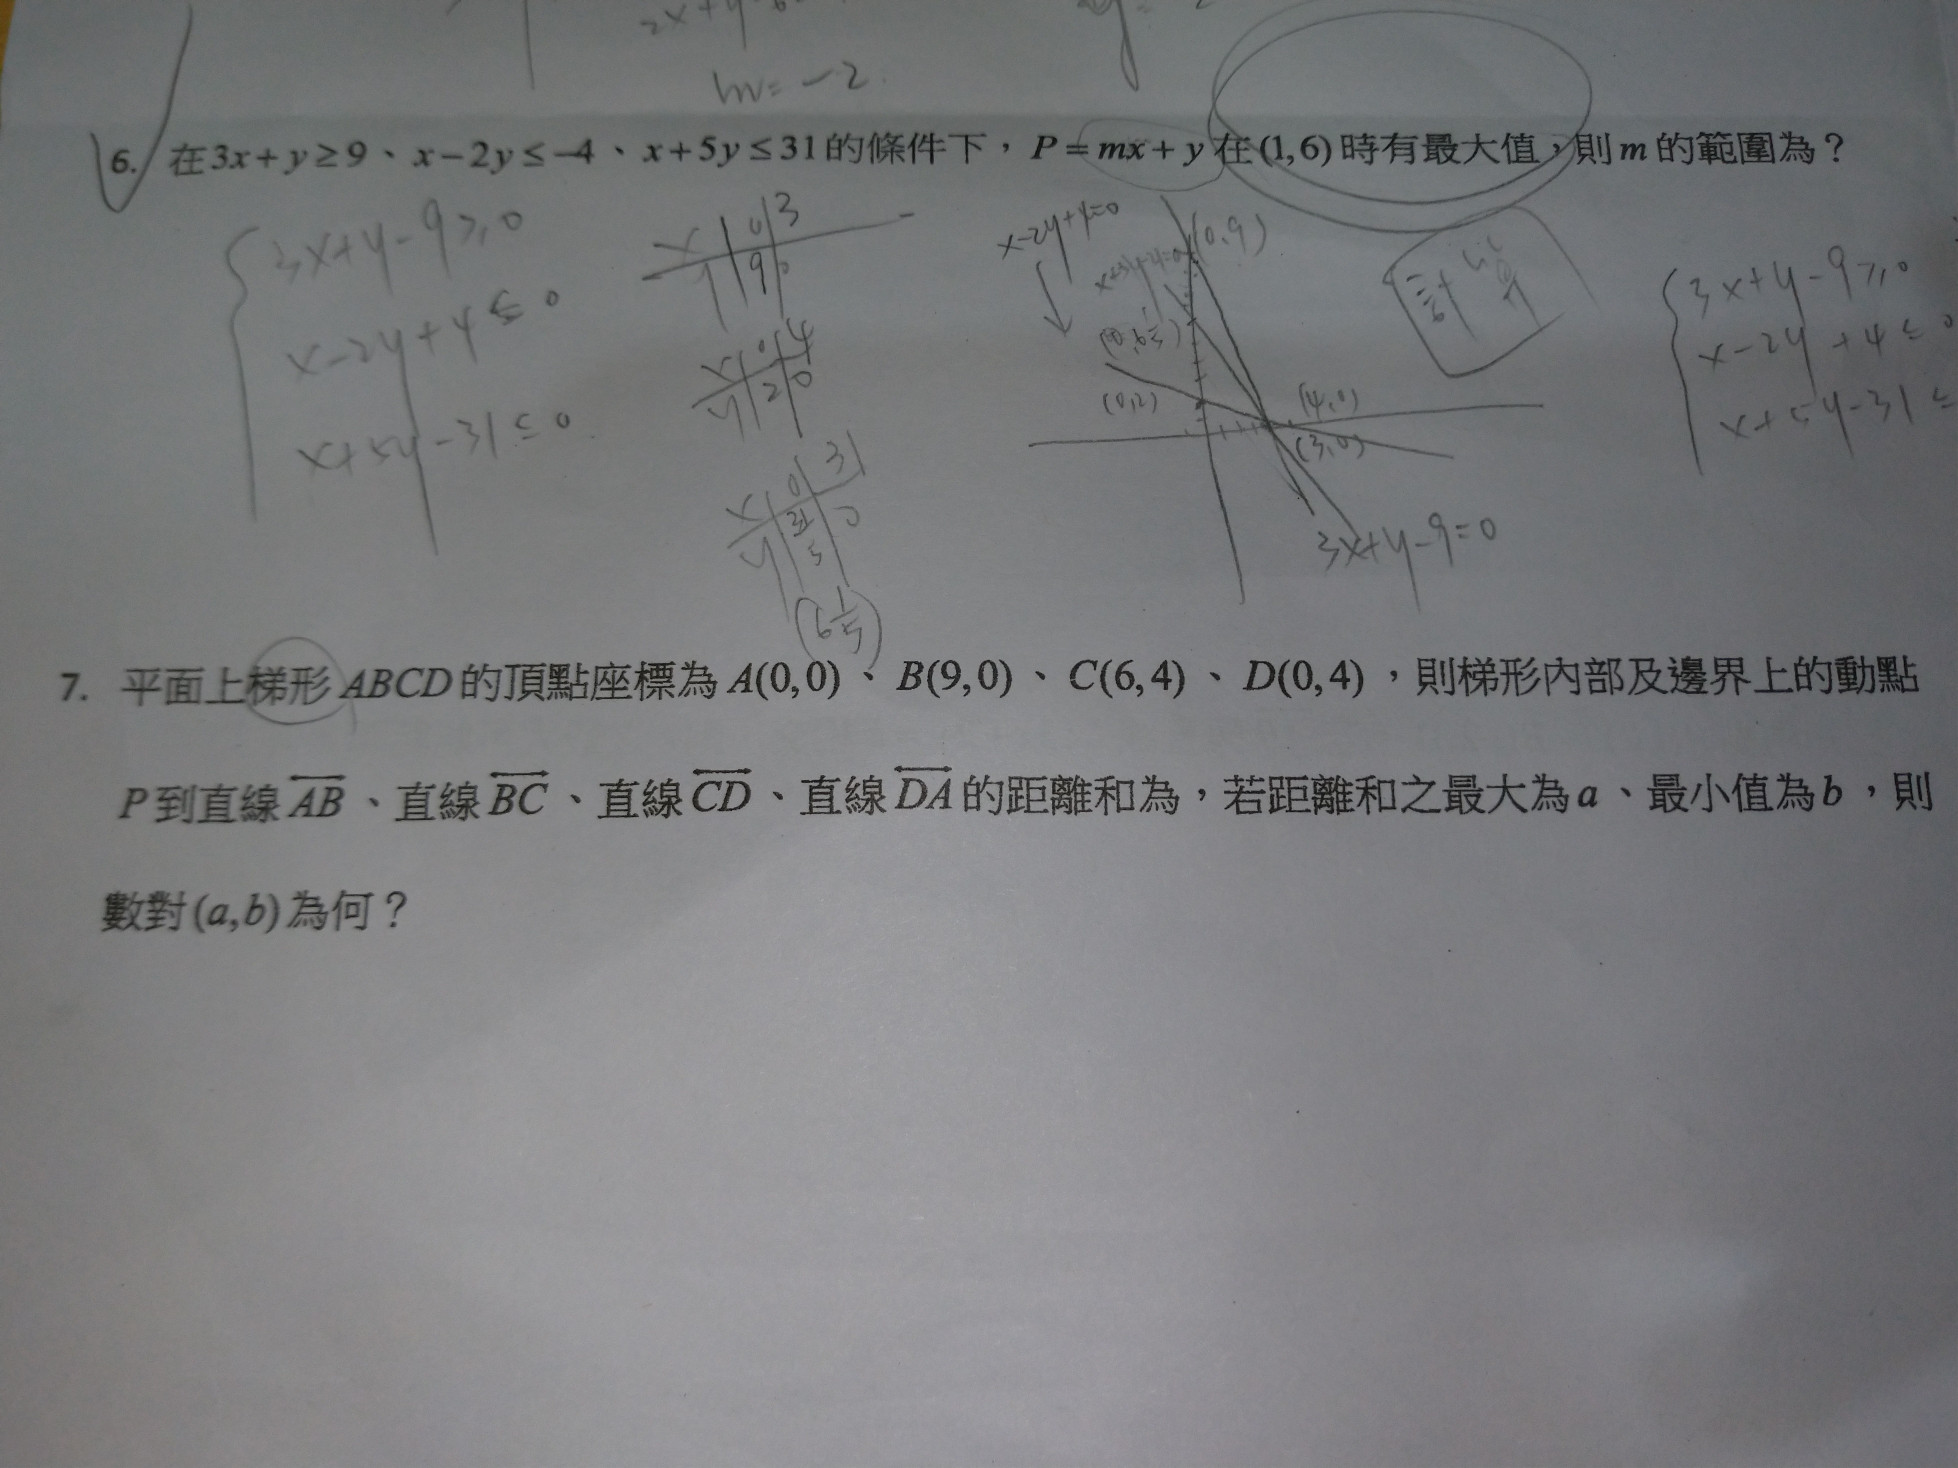 m=-2
6. 在3x+y≥9、x-2y≤-4、x+5y≤31的條件下，P=mx+y在(1,6)時有最大值，則m的範圍為？
3x+y-9≥0
x-2y+4≤0
x+5y-31≤0
x 0 3
y 9 0
y 2 0
x 0 31
y 31/5 0
(6 1/5)
x-2y+4=0
(0,9)
(0,2)
(4,0)
(3,0)
3x+y-9=0
計算
3x+y-9≥0
x-2y+4≤0
x+5y-31≤
7. 平面上梯形ABCD的頂點座標為A(0,0)、B(9,0)、C(6,4)、D(0,4)，則梯形內部及邊界上的動點
P到直線AB、直線BC、直線CD、直線DA的距離和為，若距離和之最大為a、最小值為b，則
數對(a,b)為何？